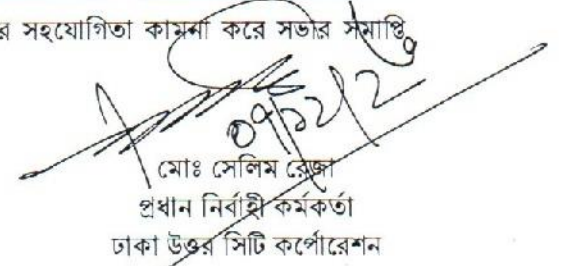 র সহযোগিতা কামনা করে সভার সমাপ্তি
মোঃ সেলিম রেজা
প্রধান নির্বাহী কর্মকর্তা
ঢাকা উত্তর সিটি কর্পোরেশন